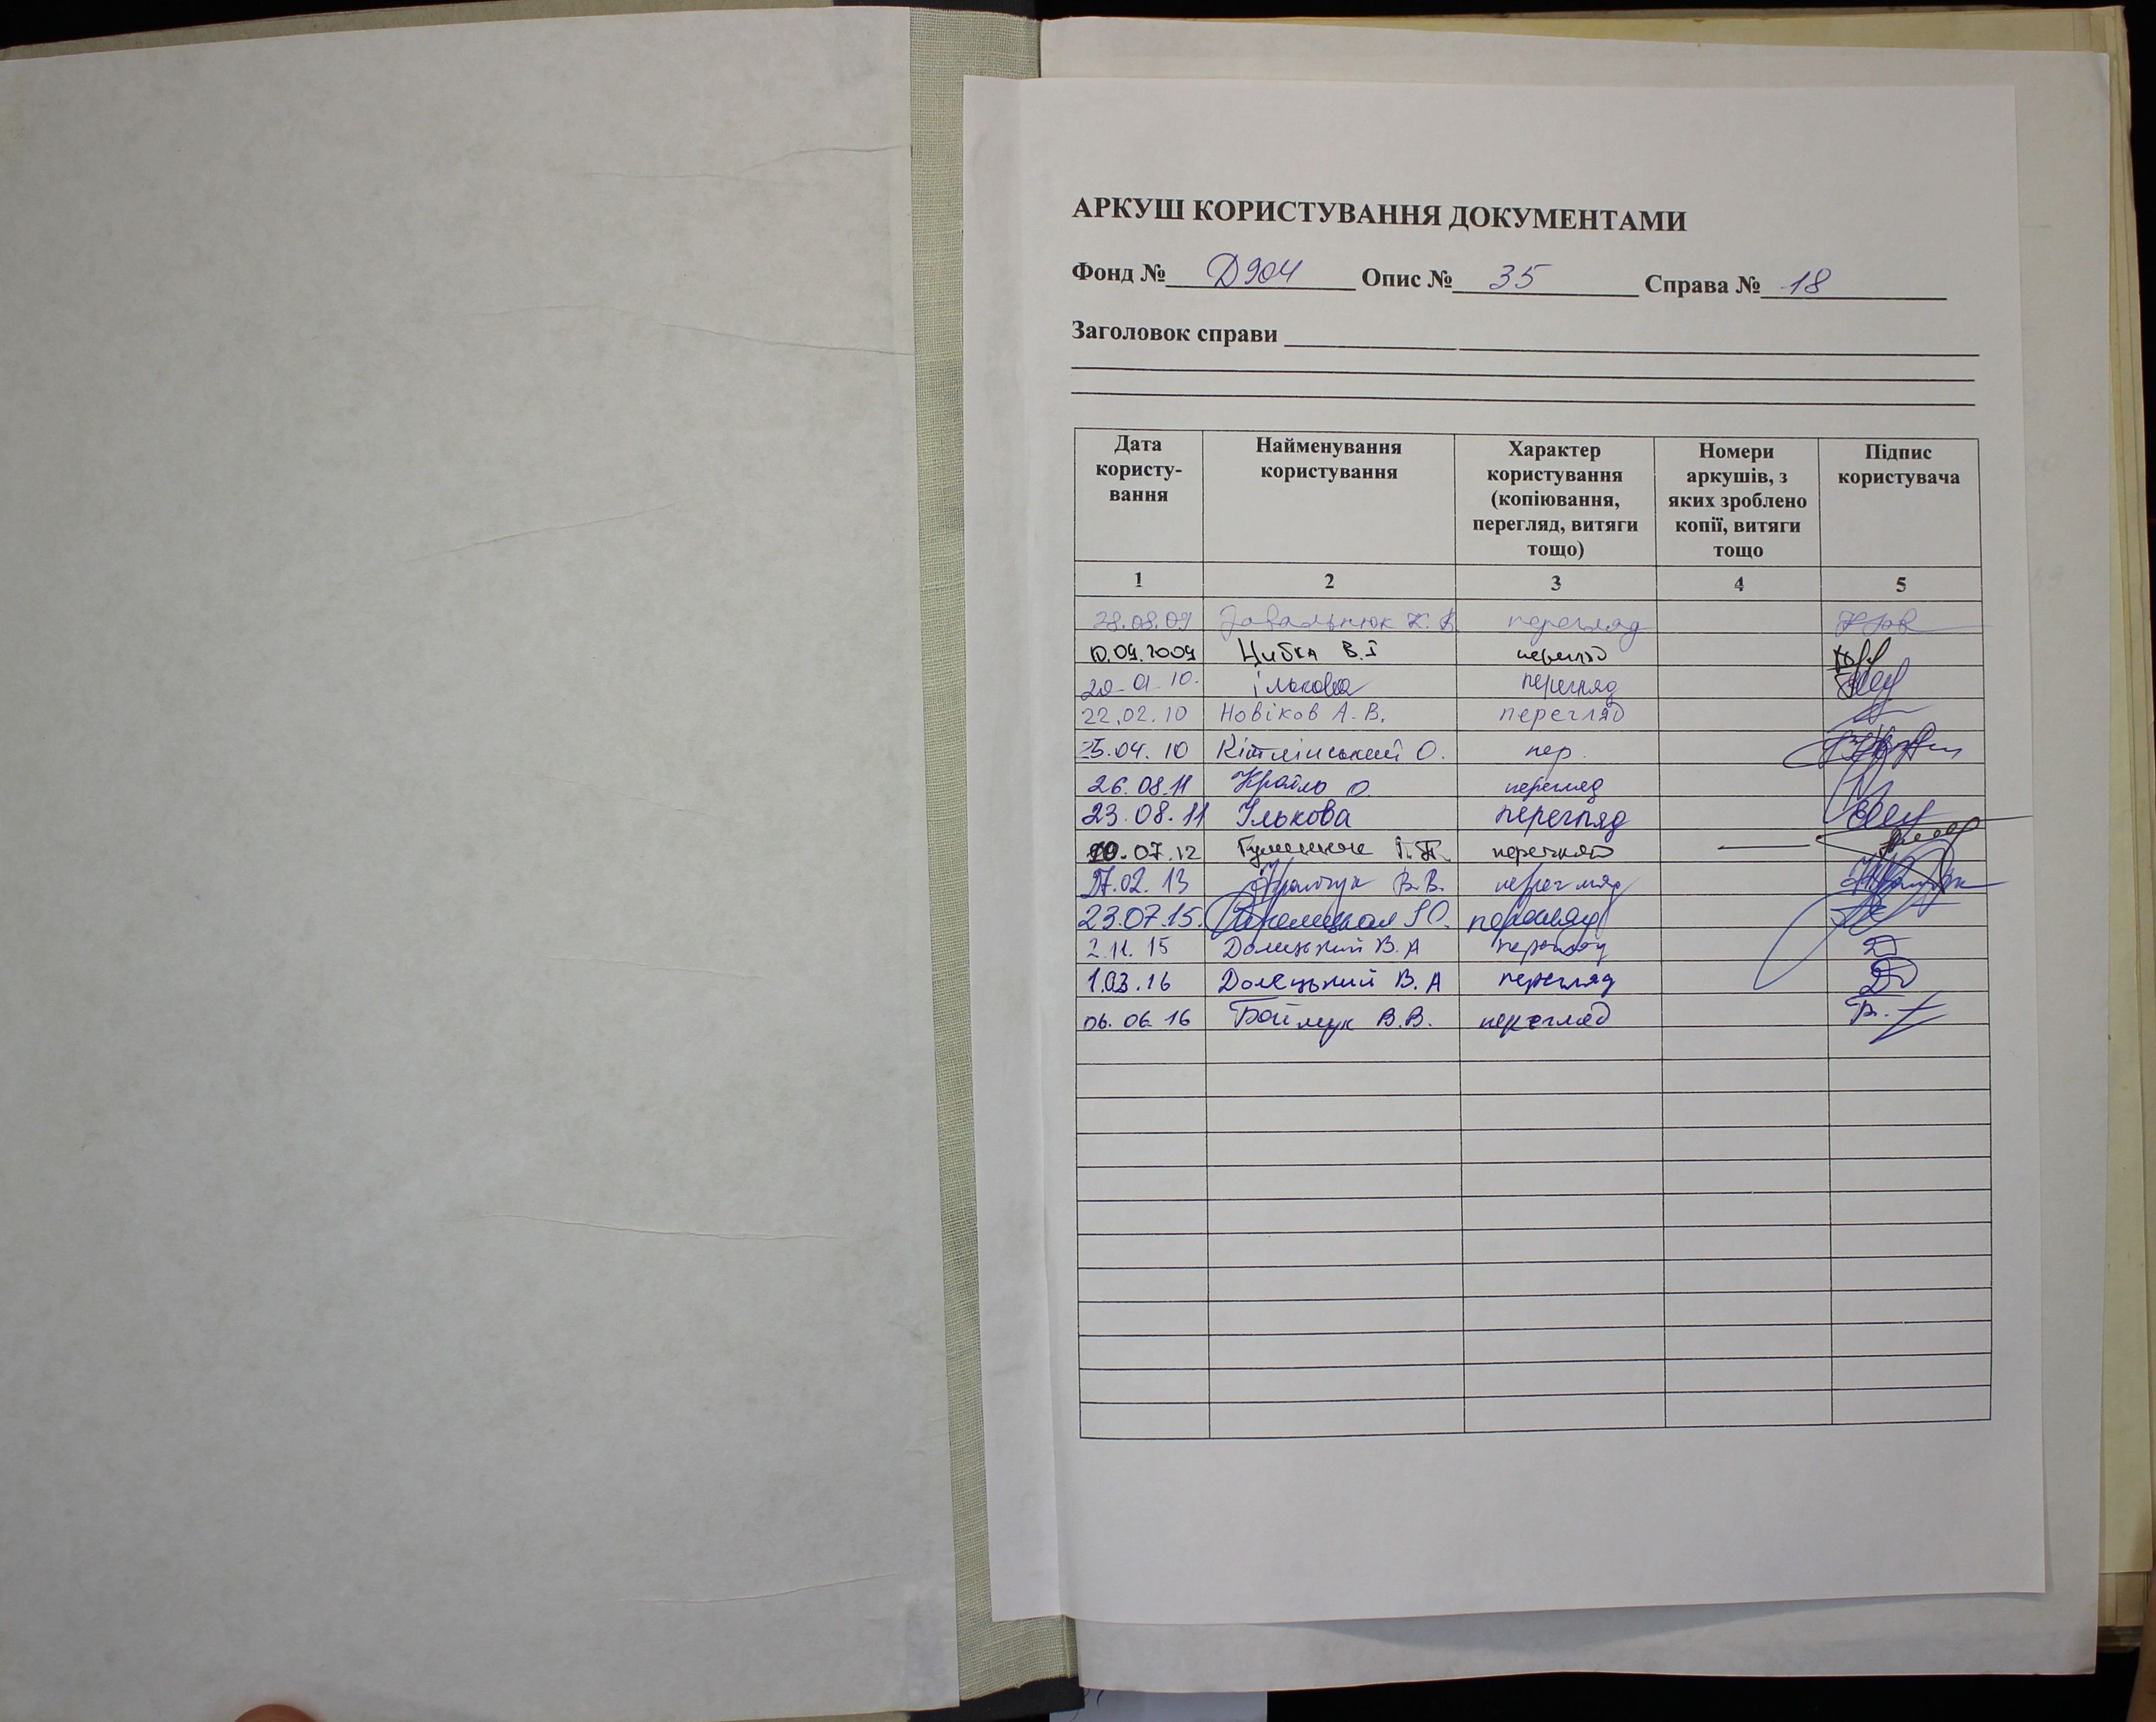 АРКУШ КОРИСТУВАННЯ ДОКУМЕНТАМИ
Фонд № Д904 Опис № 35 Справа № 18
Заголовок справи
Дата користу-вання Найменування користування Характер користування (копіювання, перегляд, витяги тощо) Номери аркушів, з яких зроблено копії, витяги тощо Підпис користувача
1 2 3 4 5
28.08.09 Завальнюк К. В. перегляд
10.09.2009 Цибка В.І перегляд
20.01.10. Ількова перегляд
22.02.10 Новіков А.В. перегляд
25.04.10 Кітлінський О. пер.
26.08.11 О. перегляд
23.08.11 Ількова перегляд
07.12 перегляд —
27.02.13 В.В. перегляд
23.07.15. перегляд
2.11.15 Долецький В.А перегляд
1.03.16 Долецький В.А перегляд
06.06.16 В.В. перегляд